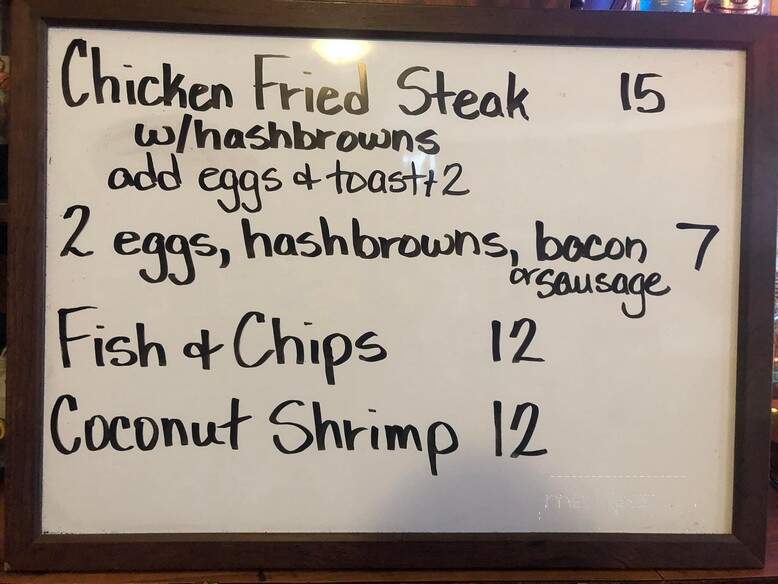 Chicken Fried Steak 15
w/hashbrowns
add eggs & toast +2
2 eggs, hashbrowns, bacon 7
or sausage
Fish & Chips 12
Coconut Shrimp 12